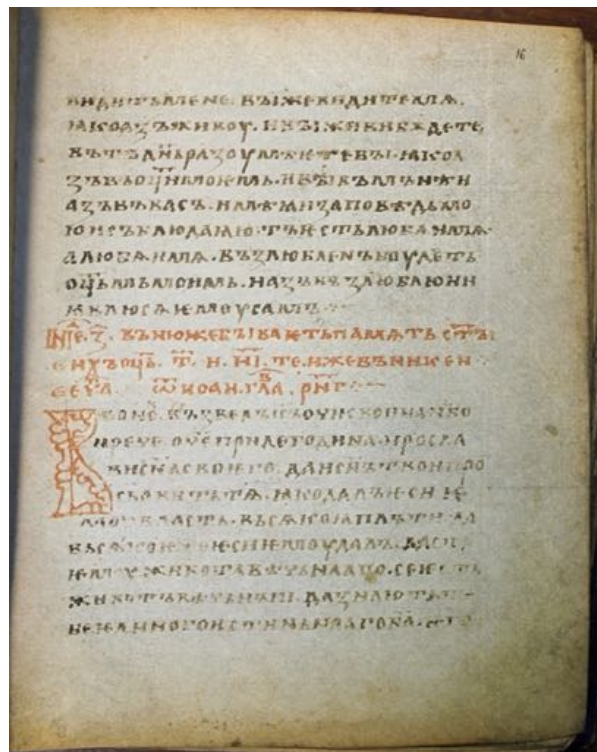 16
видитъ мене. вꙑ же видите мѧ.
ꙗко азъ живоу. и вꙑ живи бѫдете
въ тъ дн҃ь разоумѣѥте вꙑ. ꙗко а
зъ въ оц҃и моѥмь. и вꙑ въ мънѣ и
азъ въ васъ. имѣѩи заповѣди мо
ѩ и съблюдаѩ ѩ. тъ ѥсть любѩи мѧ.
а любѩи мѧ. възлюбленъ боудеть
оц҃ьмь моимь. и азъ възлюблю и и
ꙗвлю сѧ ѥмоу самъ
въ нюже бꙑваѥть памѧть ст҃ъ
ихъ оц҃ь. т҃. и. и҃і. те иже въ никеи
еѵ҃а. ѿ иоан. гл҃а. рн҃г
оно. възведъ іс҃ъ очи свои на нб҃о
и рече. оч҃е приде година. просла
ви сн҃а своѥго. да и сн҃ъ твои про
славить тѧ. ꙗко далъ ѥси ѥ
моу власть. вьсѧкоꙗ плъти. да
вьсѧко ѥже ѥси ѥмоу далъ. дасть
имъ животъ вѣчьнꙑи. се ѥсть
животъ вѣчьнꙑи. да знаѭть те
бе ѥдиного истиньнааго б҃а.